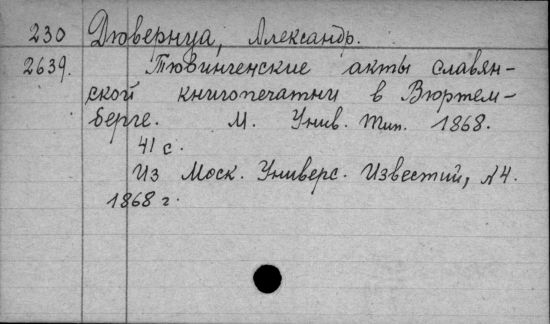 230 Дювернуа, Александр.
2639. Тювингенские акты славян-
ской книгопечатни в Вюртем-
берге. М. Унив. тип. 1868.
41 с.
Из Моск. Универс. Известий, №4.
1868 г.